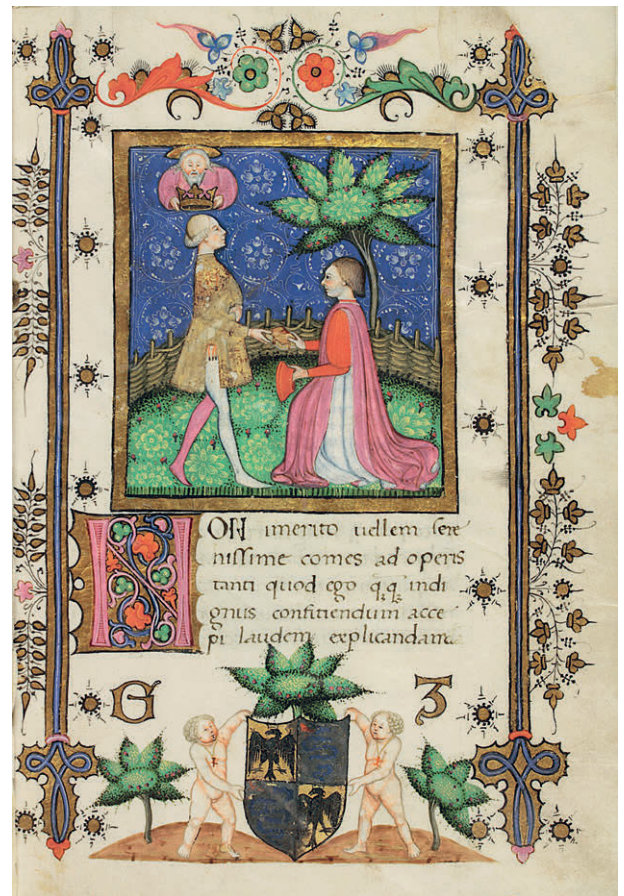 NON imerito uellem sere
nissime comes ad operis
tanti quod ego q,q indi
gnus confitiendum acce
pi laudem explicandam
G 3